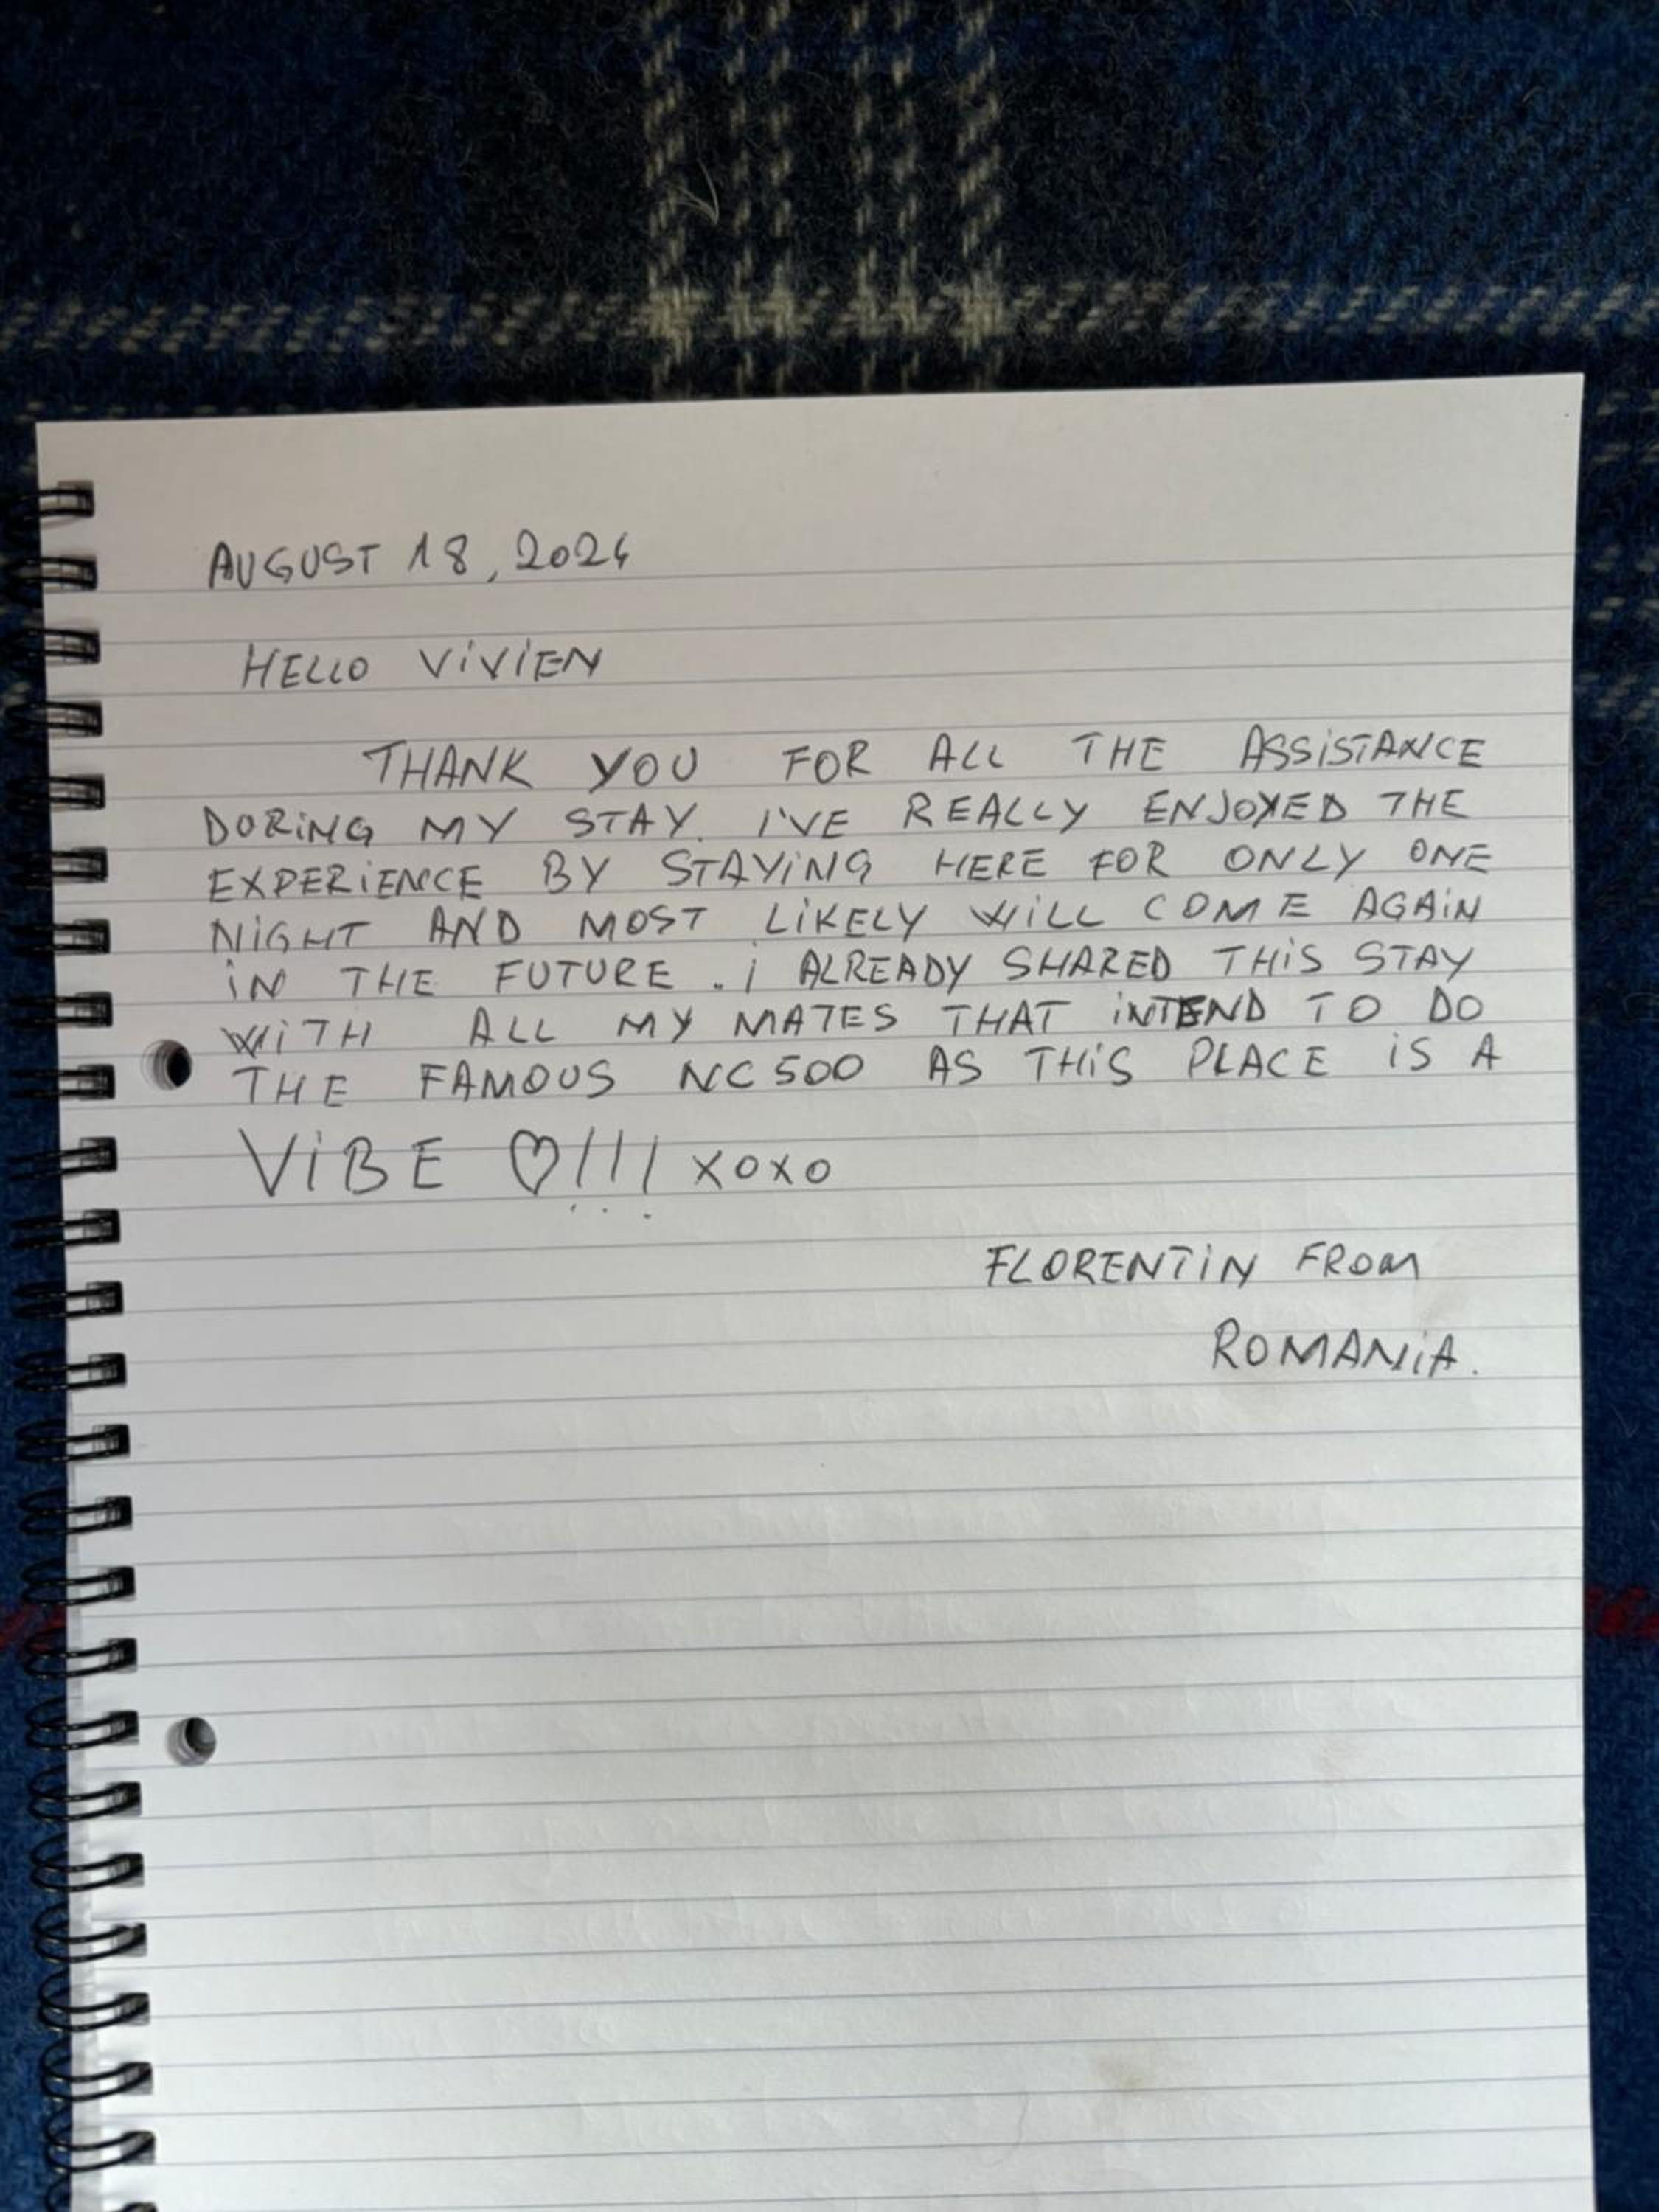 AUGUST 18, 2024
HELLO ViViEN
THANK YOU FOR ALL THE ASSiSTANCE
DORiNG MY STAY. I'VE REALLY ENJOYED THE
EXPERiENCE BY STAYiNG HERE FOR ONLY ONE
NiGHT AND MOST LiKELY WiLL COME AGAiN
iN THE FUTURE. i ALREADY SHARED THiS STAY
WiTH ALL MY MATES THAT iNTEND TO DO
THE FAMOUS NC500 AS THiS PLACE iS A
ViBE ♡!!! xoxo
FLORENTiN FROM
ROMANiA.